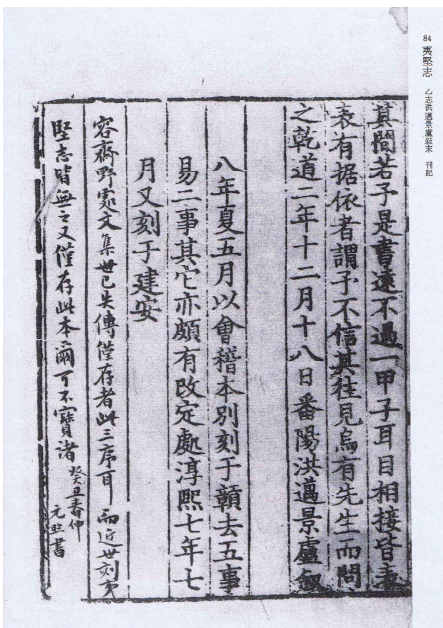 84 夷堅志 乙志洪邁景盧敍末 刊記
其間若予是書遠不過一甲子耳目相接皆表
表有据依者謂予不信其往見烏有先生而問
之乾道二年十二月十八日番陽洪邁景盧叙
八年夏五月以會稽本別刻于贛去五事
易二事其它亦頗有改定處淳熙七年七
月又刻于建安
容齋野處文集世已失傳僅存者此三序耳而近世刻夷
堅志皆無之又僅存此本爾可不寶諸
癸丑春仲
元照書